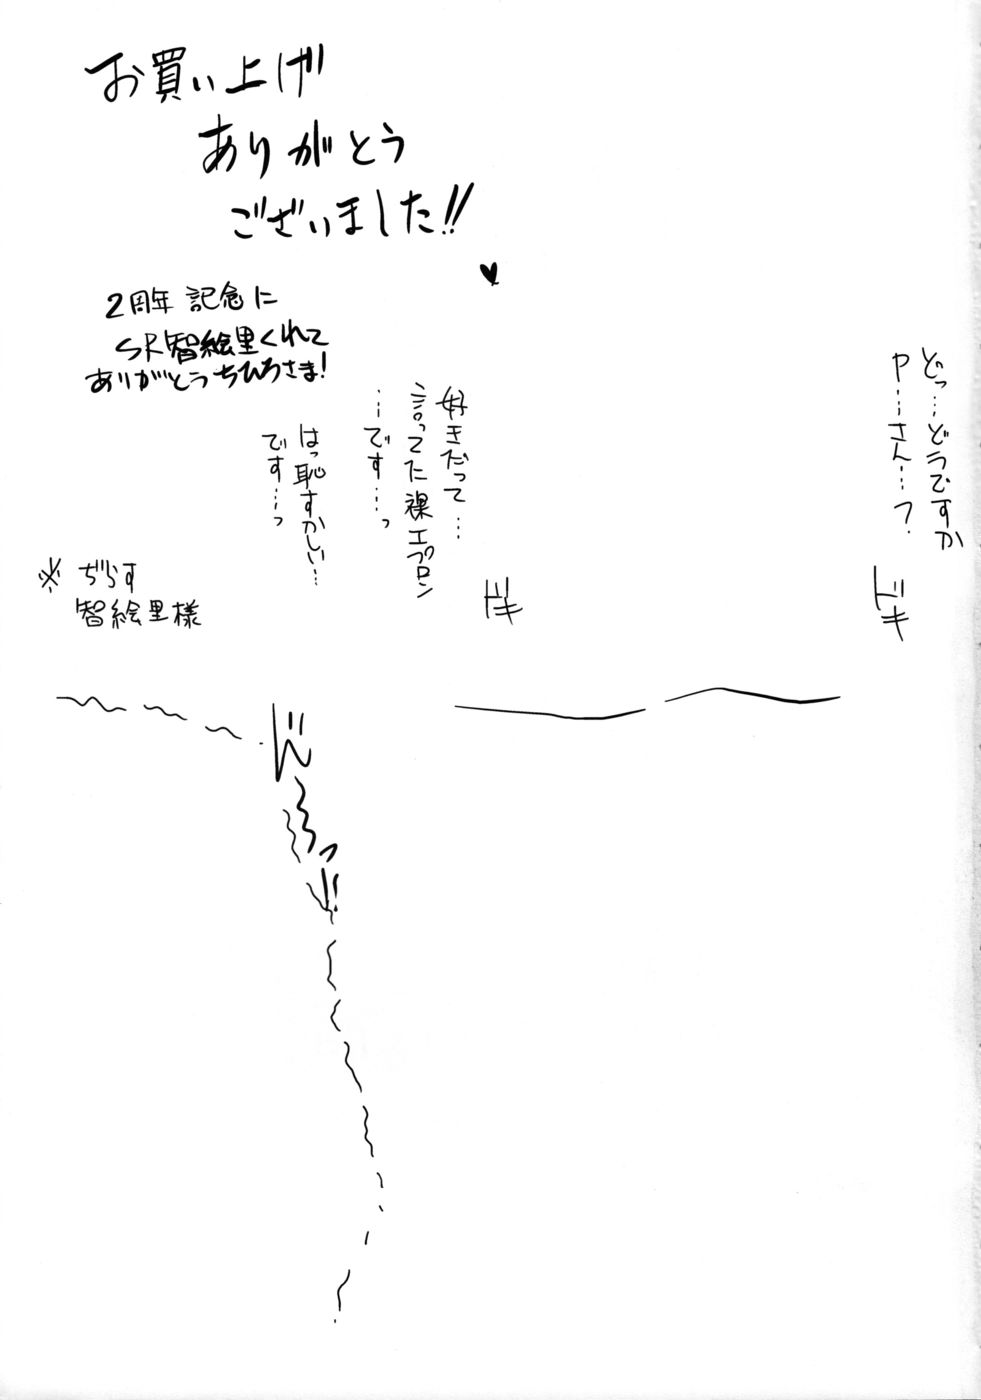 お買い上げ
ありがとう
ございました!!
2周年 記念に
SR智絵里くれて
ありがとうちひろさま!
どっ…どうですか
P……さん……?
ドキ
好きだって…
言ってた裸エプロン
……です……っ
はっ恥ずかしい…
です……っ
ドキ
※ ぢらす
智絵里様